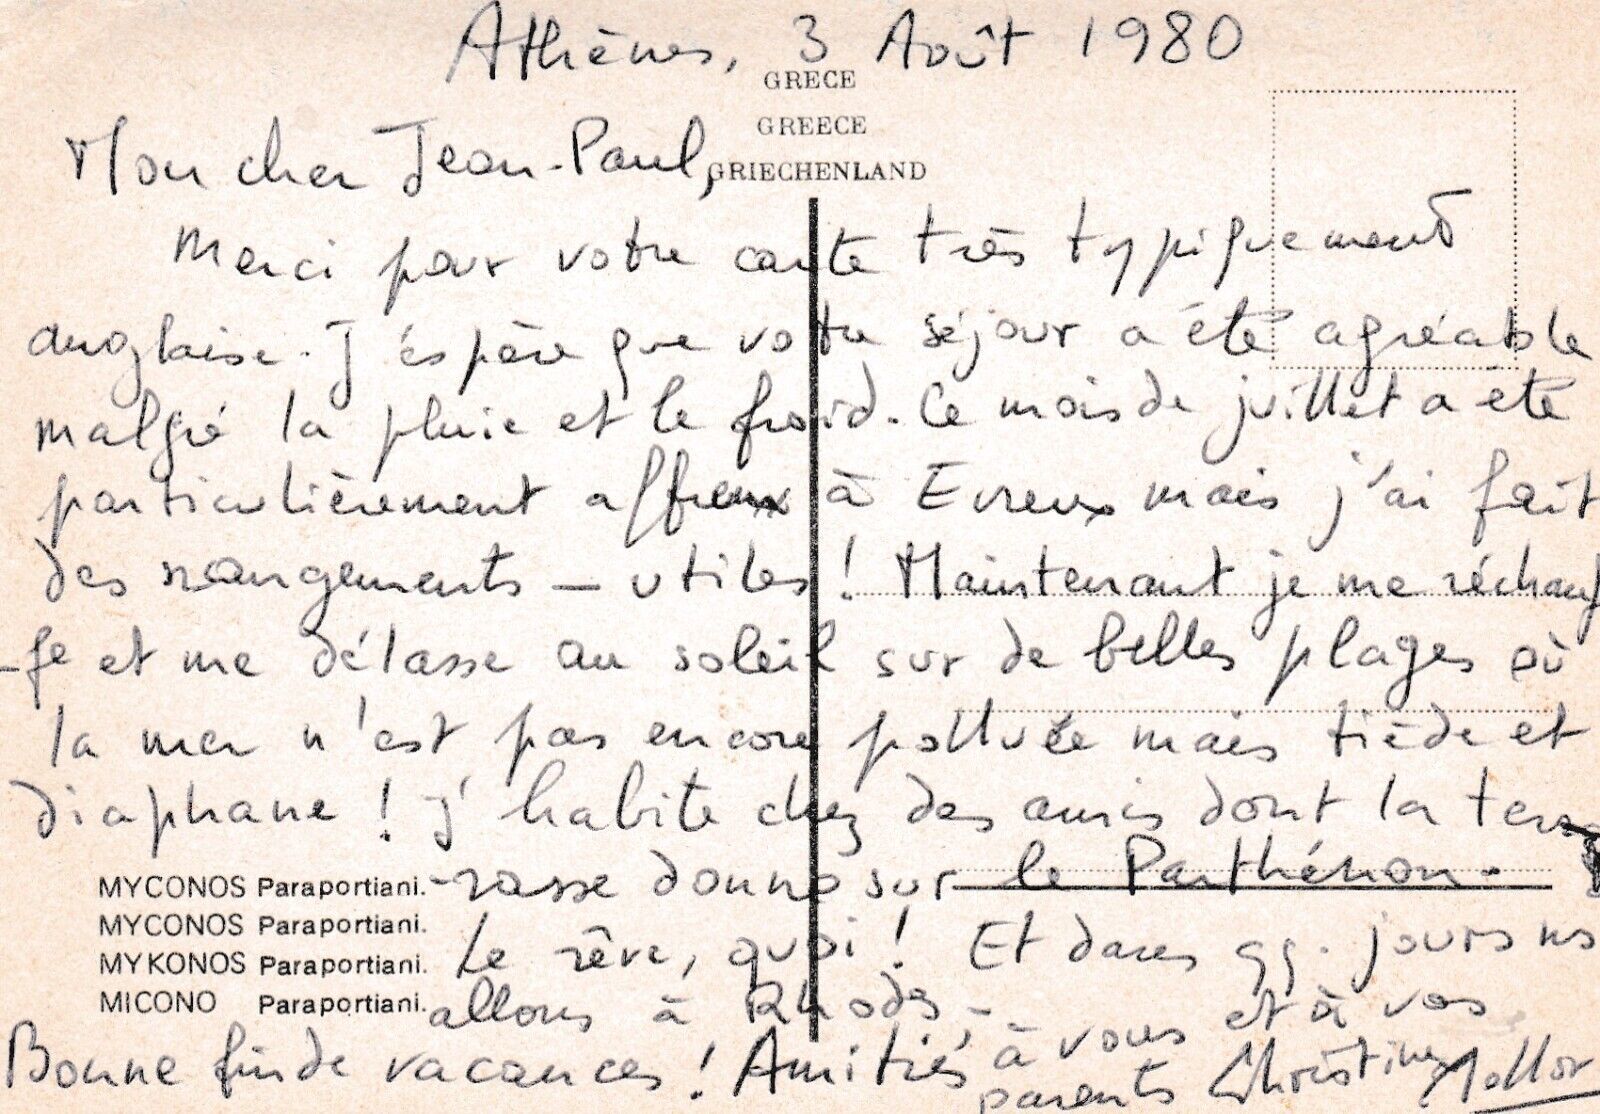 Athènes, 3 Août 1980
GRECE
GREECE
GRIECHENLAND
Mon cher Jean-Paul,
Merci pour votre carte très typiquement
anglaise. J'éspère que votre séjour a été agréable
malgré la pluie et le froid. Ce mois de juillet a été
particulièrement affreux à Evreux mais j'ai fait
des rangements - utiles ! Maintenant je me réchauf
-fe et me délasse au soleil sur de belles plages où
la mer n'est pas encore polluée mais tiède et
diaphane ! J'habite chez des amis dont la ter
-rasse donne sur le Parthénon.
Le rêve, quoi ! Et dans qq. jours ns
allons à Rhodes -
MYCONOS Paraportiani.
MYCONOS Paraportiani.
MYKONOS Paraportiani.
MICONO Paraportiani.
Bonne fin de vacances ! Amitiés à vous et à vos
parents Christine